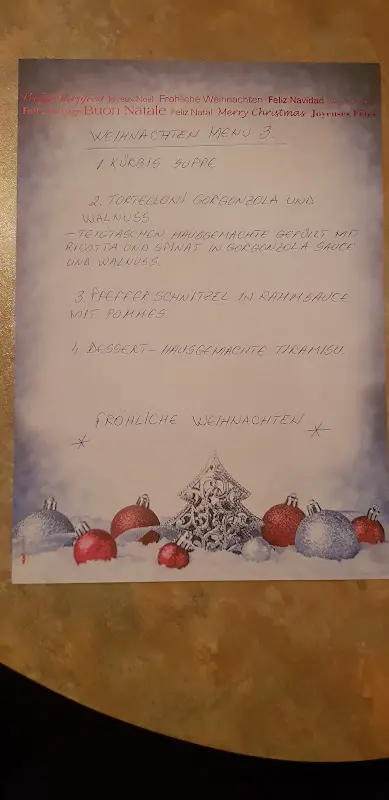 Joyeux Noël Fröhliche Weihnachten Feliz Navidad
Buon Natale Feliz Natal Merry Christmas Joyeuses Fêtes
WEIHNACHTEN MENU 3.
1. KÜRBIS SUPPE
2. TORTELLONI GORGONZOLA UND
WALNUSS
- TEIGTASCHEN HAUSGEMACHTE GEFÜLT MIT
RICOTTA UND SPINAT IN GORGONZOLA SAUCE
UND WALNUSS.
3. PFEFFER SCHNITZEL IN RAHMSAUCE
MIT POMMES
4. DESSERT - HAUSGEMACHTE TIRAMISU.
FRÖHLICHE WEIHNACHTEN